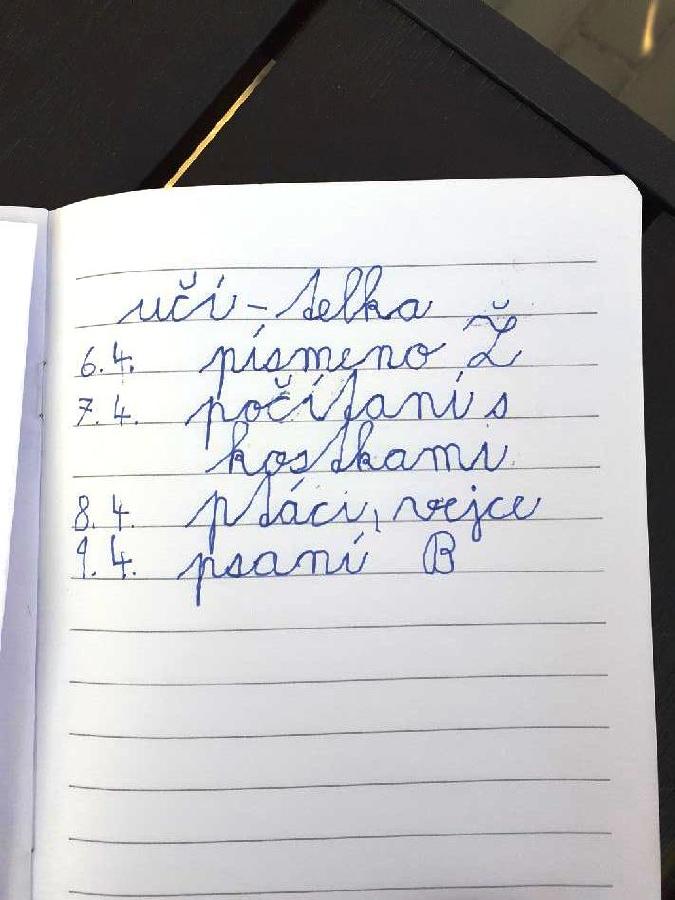 uči-telka
6.4. písmeno Ž
7.4. počítaní s
kostkami
8.4. ptáci, vejce
9.4. psaní B